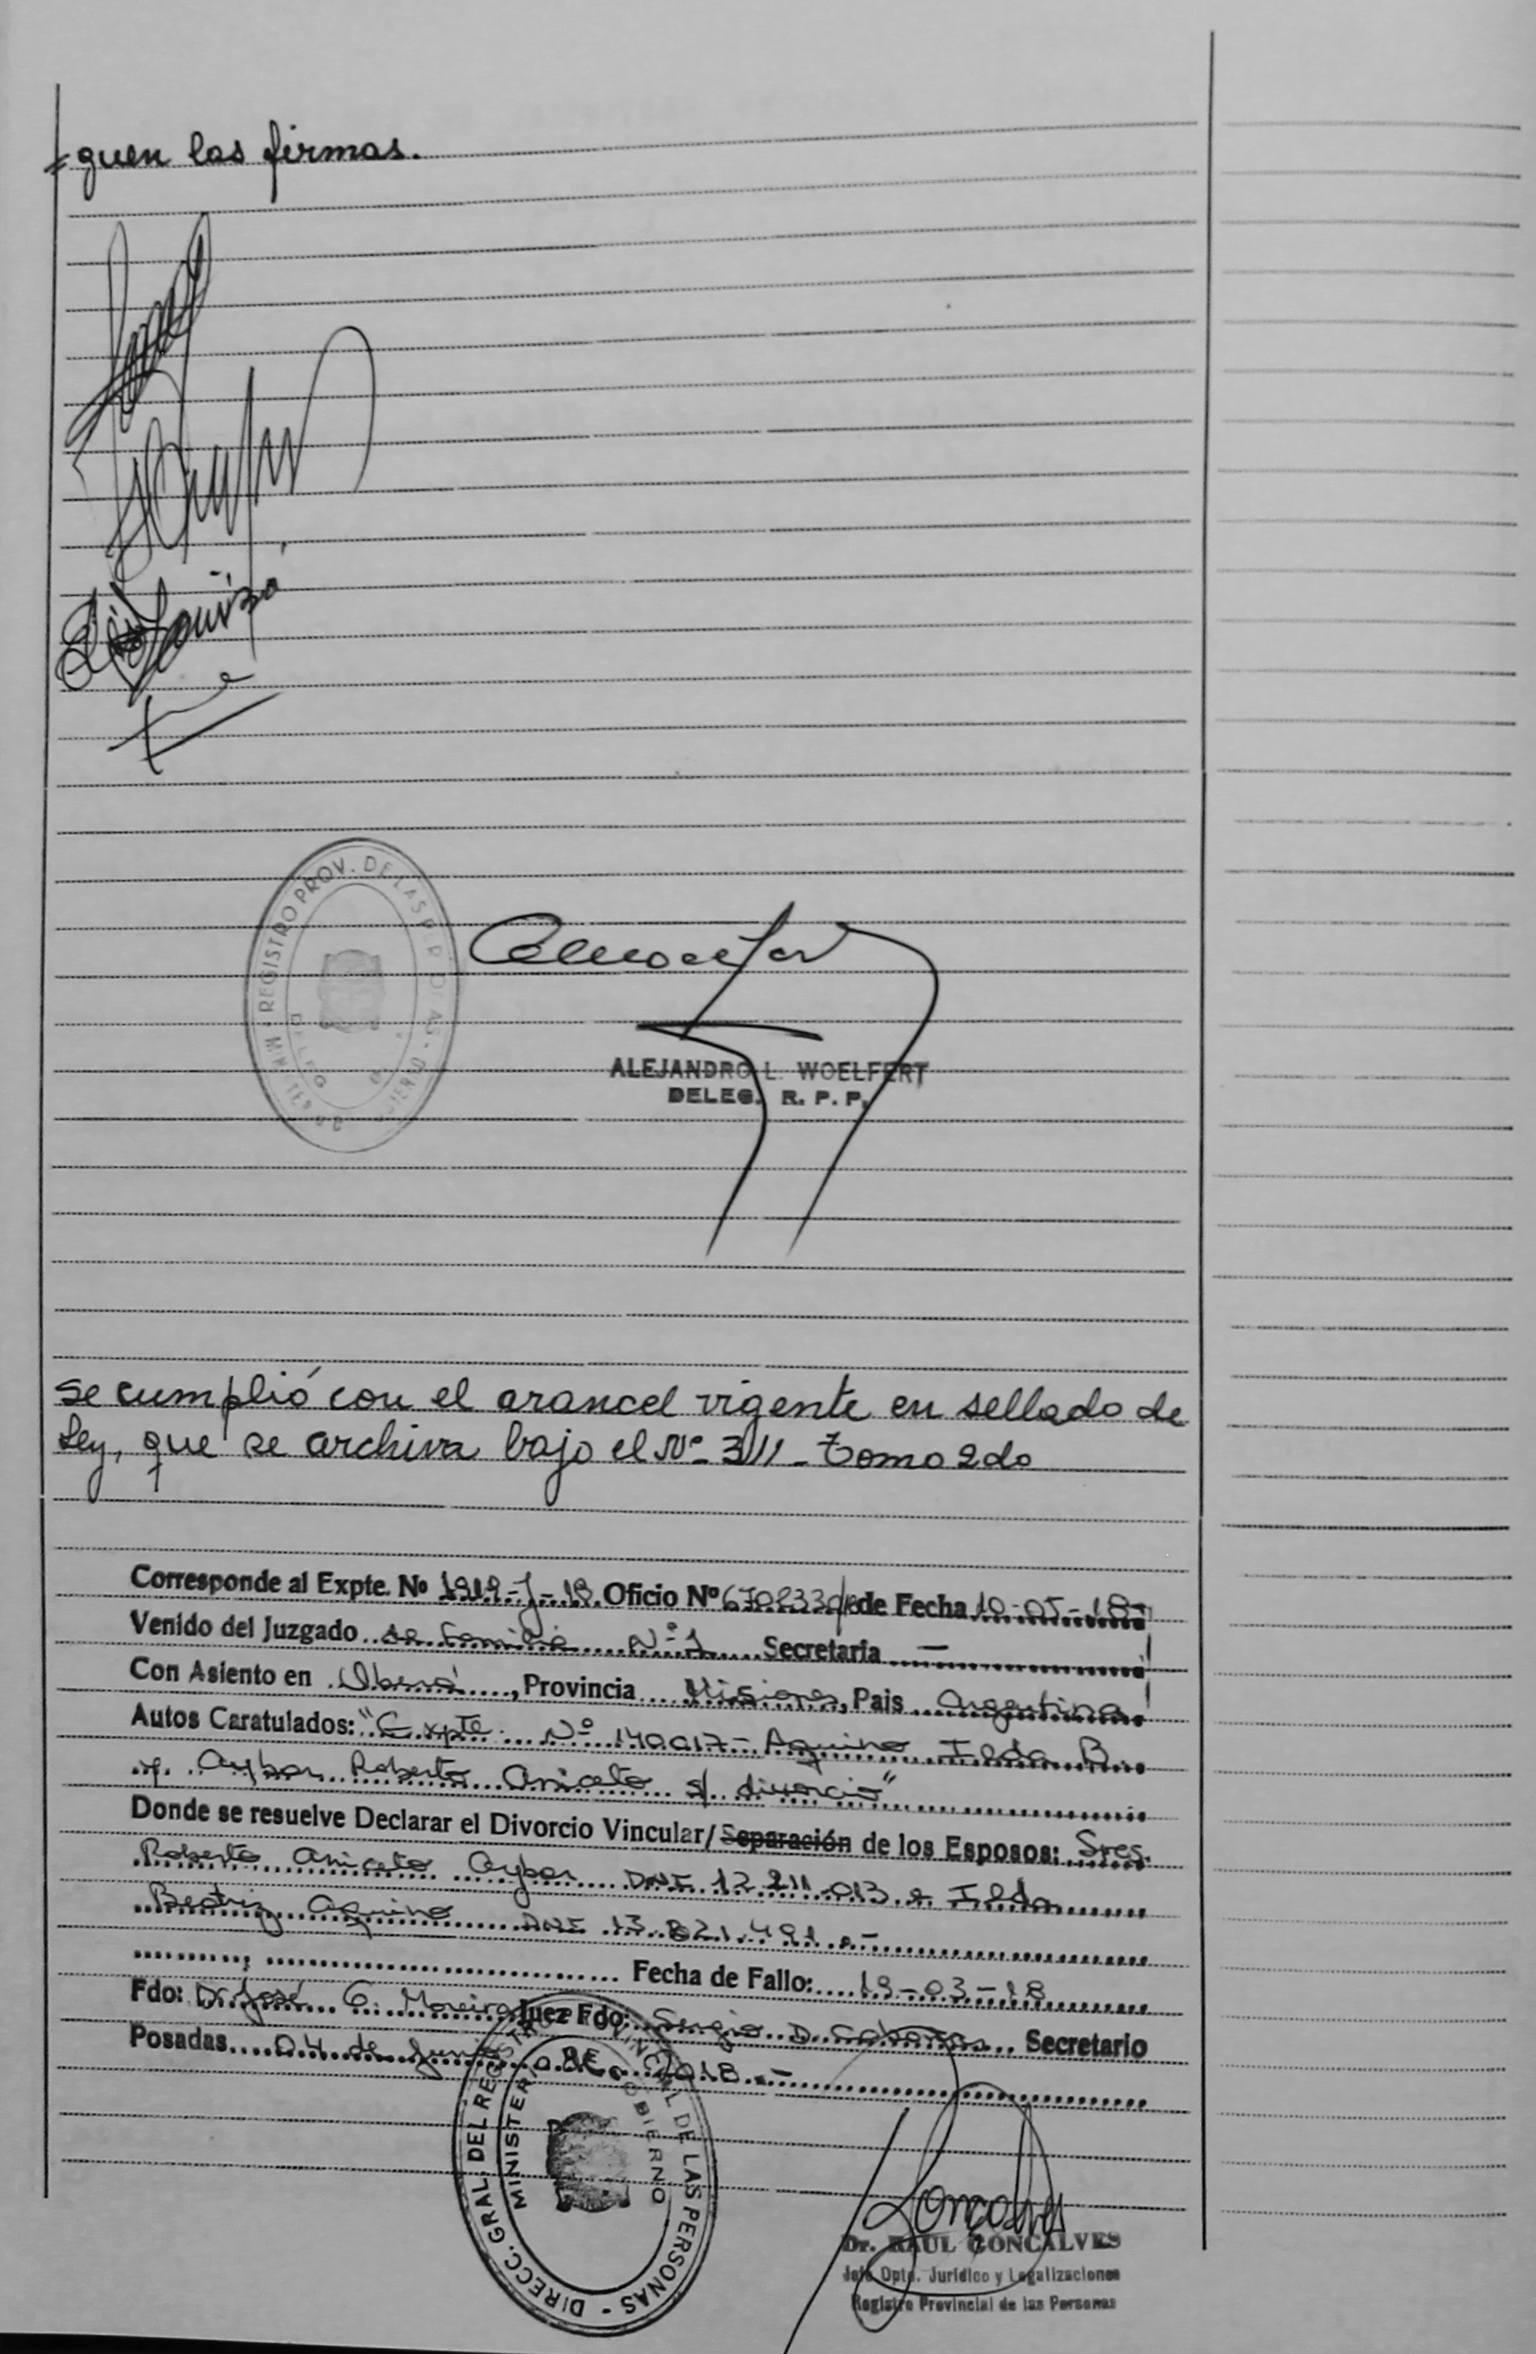 =guen las firmas.
REGISTRO PROV. DE LAS
ALEJANDRO L. WOELFERT
DELEG. R. P. P.
se cumplió con el arancel vigente en sellado de
Ley, que se archiva bajo el Nº 311 - Tomo 2do
Corresponde al Expte. Nº 1919-J-18 Oficio Nº de Fecha 10-05-18-
Venido del Juzgado de Familia Nº 1 Secretaría —
Con Asiento en Oberá, Provincia Misiones, Pais Argentina
Autos Caratulados: "Expte. Nº 140017- Aquino Ilda B.
c/ Aybar Roberto Aniceto s/ divorcio"
Donde se resuelve Declarar el Divorcio Vincular/Separación de los Esposos: Sres.
Roberto Aniceto Aybar DNI 12.211.013 e Ilda
Beatriz Aquino DNI 13.821.491.-
Fecha de Fallo: 19-03-18
Fdo: Dr. José G. Moreira Juez Fdo: Sergio D. Cabañas Secretario
Posadas 04 de Junio de 2018.-
DIRECC. GRAL. DEL REGISTRO PROVINCIAL DE LAS PERSONAS -
MINISTERIO DE GOBIERNO
Dr. RAUL GONCALVES
Jefe Dpto. Jurídico y Legalizaciones
Registro Provincial de las Personas